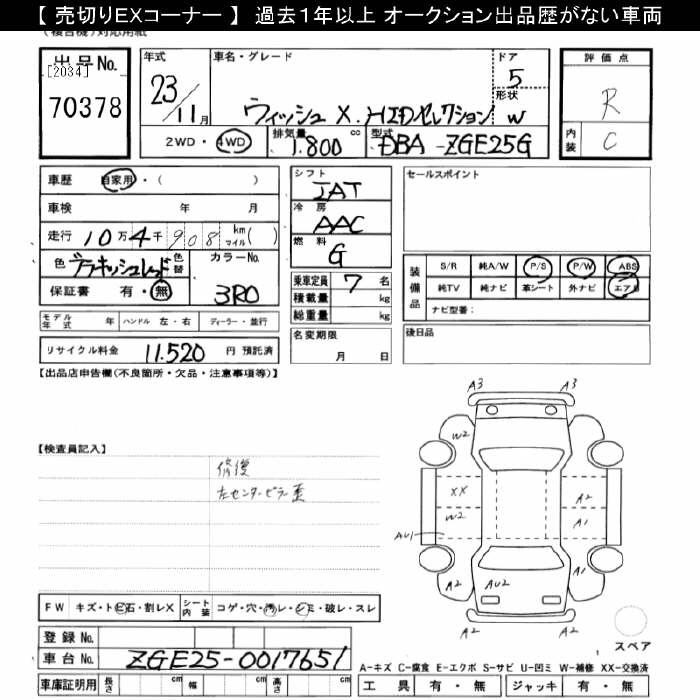 【 売切りEXコーナー 】 過去１年以上 オークション出品歴がない車両
(複合機)対応用紙
出品No.
[2034]
70378
年式
23/11月
車名・グレード
ウィッシュ X. HIDセレクション
ドア
5
形状
W
評価点
R
内装
C
2WD・4WD
排気量
1.800 cc
型式
DBA-ZGE25G
車歴 自家用・( )
車検 年 月
走行 10万4千908 km マイル( )
色 ブラキッシュレッド 色替
カラーNo.
3R0
保証書 有・無
モデル年式 年 ハンドル 左・右 ディーラー・並行
リサイクル料金 11.520 円 預託済
シフト
IAT
冷房
AAC
燃料
G
乗車定員 7 名
積載量 kg
総重量 kg
名変期限
月 日
セールスポイント
装備品
S/R 純A/W P/S P/W ABS
純TV 純ナビ 革シート 外ナビ エアB
ナビ型番：
後日品
【出品店申告欄(不良箇所・欠品・注意事項等)】
【検査員記入】
修復
左センターピラー歪
A3 A3
W2
XX A2
W2 A1
AU1
A2 AU2 A1
A2
A2
スペア
FW キズ・トビ石・割レX シート内装 コゲ・穴・汚レ・シミ・破レ・スレ
登録No.
車台No. ZGE25-0017651
車庫証明用 長さ cm 幅 cm 高さ cm
A-キズ C-腐食 E-エクボ S-サビ U-凹ミ W-補修 XX-交換済
工具 有・無 ジャッキ 有・無